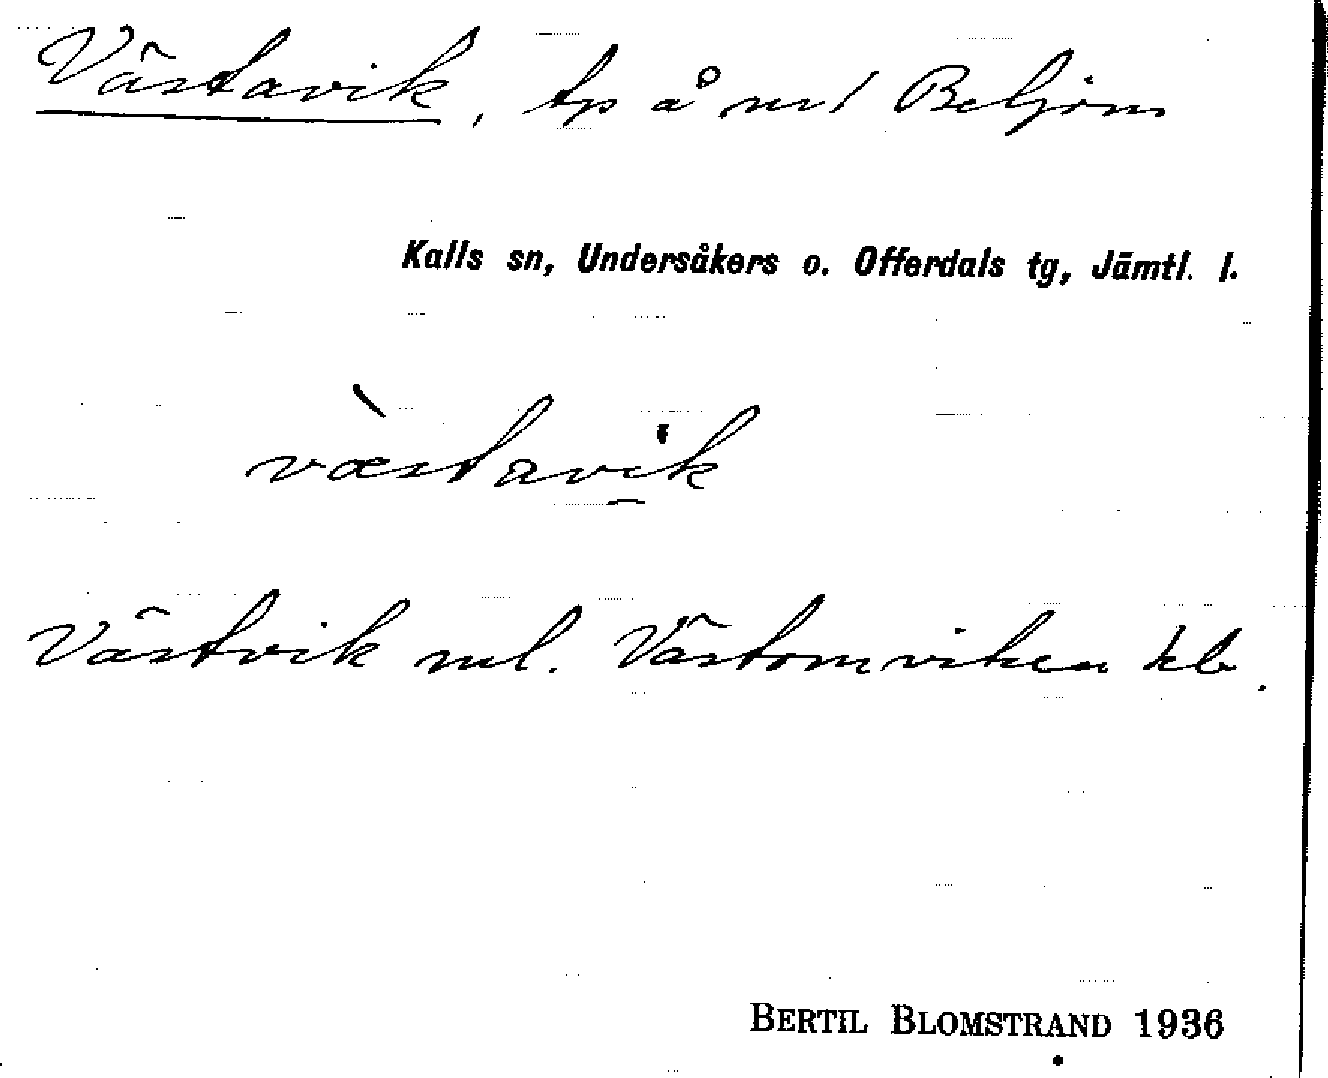 Västavik, tp å nr 1 Beljom
Kalls sn, Undersåkers o. Offerdals tg, Jämtl. l.
væstavik
Västvik ml. Västomviken kb.
BERTIL BLOMSTRAND 1936